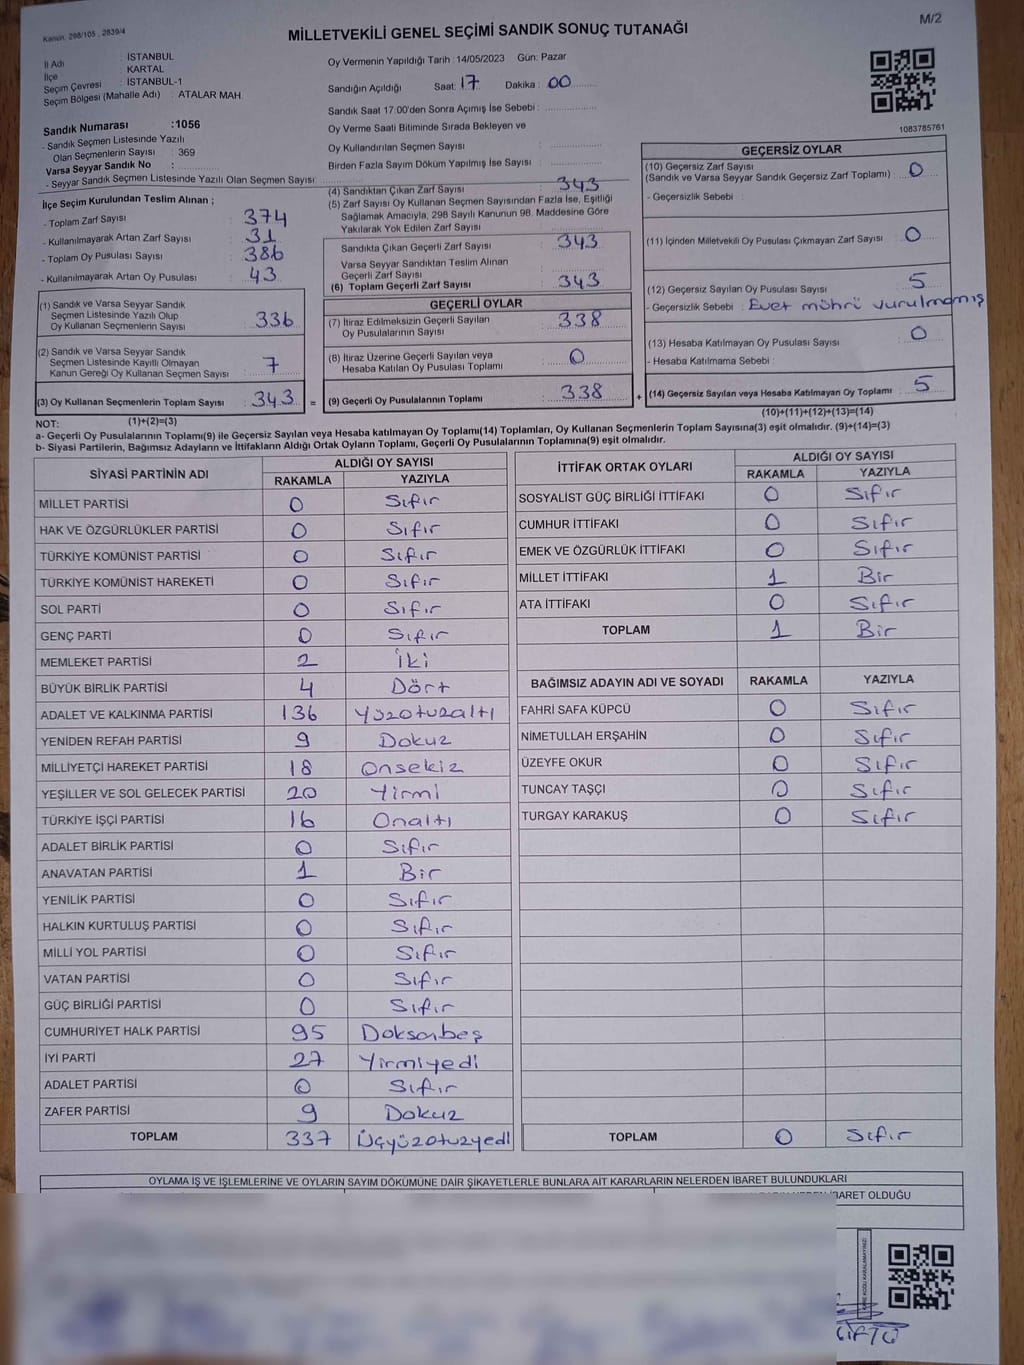 Kanun: 298/105 , 2839/4
MİLLETVEKİLİ GENEL SEÇİMİ SANDIK SONUÇ TUTANAĞI
M/2
İl Adı : İSTANBUL
İlçe : KARTAL
Seçim Çevresi : İSTANBUL-1
Seçim Bölgesi (Mahalle Adı) : ATALAR MAH.
Oy Vermenin Yapıldığı Tarih : 14/05/2023 Gün: Pazar
Sandığın Açıldığı Saat: 17 Dakika : 00
Sandık Saat 17:00'den Sonra Açımış İse Sebebi :
Oy Verme Saati Bitiminde Sırada Bekleyen ve
Oy Kullandırılan Seçmen Sayısı :
Birden Fazla Sayım Döküm Yapılmış İse Sayısı :
1083785761
Sandık Numarası :1056
- Sandık Seçmen Listesinde Yazılı
Olan Seçmenlerin Sayısı : 369
Varsa Seyyar Sandık No :
- Seyyar Sandık Seçmen Listesinde Yazılı Olan Seçmen Sayısı :
İlçe Seçim Kurulundan Teslim Alınan ;
- Toplam Zarf Sayısı : 374
- Kullanılmayarak Artan Zarf Sayısı : 31
- Toplam Oy Pusulası Sayısı : 386
- Kullanılmayarak Artan Oy Pusulası : 43
(1) Sandık ve Varsa Seyyar Sandık
Seçmen Listesinde Yazılı Olup
Oy Kullanan Seçmenlerin Sayısı : 336
(2) Sandık ve Varsa Seyyar Sandık
Seçmen Listesinde Kayıtlı Olmayan
Kanun Gereği Oy Kullanan Seçmen Sayısı : 7
(3) Oy Kullanan Seçmenlerin Toplam Sayısı : 343 =
(4) Sandıktan Çıkan Zarf Sayısı : 343
(5) Zarf Sayısı Oy Kullanan Seçmen Sayısından Fazla İse, Eşitliği
Sağlamak Amacıyla, 298 Sayılı Kanunun 98. Maddesine Göre
Yakılarak Yok Edilen Zarf Sayısı :
Sandıkta Çıkan Geçerli Zarf Sayısı : 343
Varsa Seyyar Sandıktan Teslim Alınan
Geçerli Zarf Sayısı :
(6) Toplam Geçerli Zarf Sayısı : 343
GEÇERLİ OYLAR
(7) İtiraz Edilmeksizin Geçerli Sayılan
Oy Pusulalarının Sayısı : 338
(8) İtiraz Üzerine Geçerli Sayılan veya
Hesaba Katılan Oy Pusulası Toplamı : 0
(9) Geçerli Oy Pusulalarının Toplamı : 338 +
GEÇERSİZ OYLAR
(10) Geçersiz Zarf Sayısı
(Sandık ve Varsa Seyyar Sandık Geçersiz Zarf Toplamı) : 0
- Geçersizlik Sebebi :
(11) İçinden Milletvekili Oy Pusulası Çıkmayan Zarf Sayısı : 0
(12) Geçersiz Sayılan Oy Pusulası Sayısı : 5
- Geçersizlik Sebebi : Evet mührü vurulmamış
(13) Hesaba Katılmayan Oy Pusulası Sayısı : 0
- Hesaba Katılmama Sebebi :
(14) Geçersiz Sayılan veya Hesaba Katılmayan Oy Toplamı : 5
NOT: (1)+(2)=(3) (10)+(11)+(12)+(13)=(14)
a- Geçerli Oy Pusulalarının Toplamı(9) ile Geçersiz Sayılan veya Hesaba katılmayan Oy Toplamı(14) Toplamları, Oy Kullanan Seçmenlerin Toplam Sayısına(3) eşit olmalıdır. (9)+(14)=(3)
b- Siyasi Partilerin, Bağımsız Adayların ve İttifakların Aldığı Ortak Oyların Toplamı, Geçerli Oy Pusulalarının Toplamına(9) eşit olmalıdır.
SİYASİ PARTİNİN ADI ALDIĞI OY SAYISI
RAKAMLA YAZIYLA
MİLLET PARTİSİ 0 Sıfır
HAK VE ÖZGÜRLÜKLER PARTİSİ 0 Sıfır
TÜRKİYE KOMÜNİST PARTİSİ 0 Sıfır
TÜRKİYE KOMÜNİST HAREKETİ 0 Sıfır
SOL PARTİ 0 Sıfır
GENÇ PARTİ 0 Sıfır
MEMLEKET PARTİSİ 2 İki
BÜYÜK BİRLİK PARTİSİ 4 Dört
ADALET VE KALKINMA PARTİSİ 136 Yüzotuzaltı
YENİDEN REFAH PARTİSİ 9 Dokuz
MİLLİYETÇİ HAREKET PARTİSİ 18 Onsekiz
YEŞİLLER VE SOL GELECEK PARTİSİ 20 Yirmi
TÜRKİYE İŞÇİ PARTİSİ 16 Onaltı
ADALET BİRLİK PARTİSİ 0 Sıfır
ANAVATAN PARTİSİ 1 Bir
YENİLİK PARTİSİ 0 Sıfır
HALKIN KURTULUŞ PARTİSİ 0 Sıfır
MİLLİ YOL PARTİSİ 0 Sıfır
VATAN PARTİSİ 0 Sıfır
GÜÇ BİRLİĞİ PARTİSİ 0 Sıfır
CUMHURİYET HALK PARTİSİ 95 Doksanbeş
İYİ PARTİ 27 Yirmiyedi
ADALET PARTİSİ 0 Sıfır
ZAFER PARTİSİ 9 Dokuz
TOPLAM 337 Üçyüzotuzyedi
İTTİFAK ORTAK OYLARI ALDIĞI OY SAYISI
RAKAMLA YAZIYLA
SOSYALİST GÜÇ BİRLİĞİ İTTİFAKI 0 Sıfır
CUMHUR İTTİFAKI 0 Sıfır
EMEK VE ÖZGÜRLÜK İTTİFAKI 0 Sıfır
MİLLET İTTİFAKI 1 Bir
ATA İTTİFAKI 0 Sıfır
TOPLAM 1 Bir
BAĞIMSIZ ADAYIN ADI VE SOYADI RAKAMLA YAZIYLA
FAHRİ SAFA KÜPCÜ 0 Sıfır
NİMETULLAH ERŞAHİN 0 Sıfır
ÜZEYFE OKUR 0 Sıfır
TUNCAY TAŞÇI 0 Sıfır
TURGAY KARAKUŞ 0 Sıfır
TOPLAM 0 Sıfır
OYLAMA İŞ VE İŞLEMLERİNE VE OYLARIN SAYIM DÖKÜMÜNE DAİR ŞİKAYETLERLE BUNLARA AİT KARARLARIN NELERDEN İBARET BULUNDUKLARI
OLDUĞU